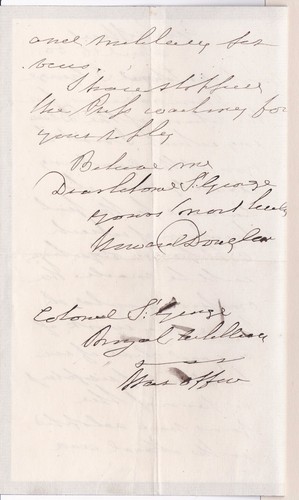 and military for
I have stopped
the Press waiting for
your reply
Believe me
Dear Colonel St. George
yours most truly
Howard Douglas
Colonel St. George
Royal Artillery
War Office